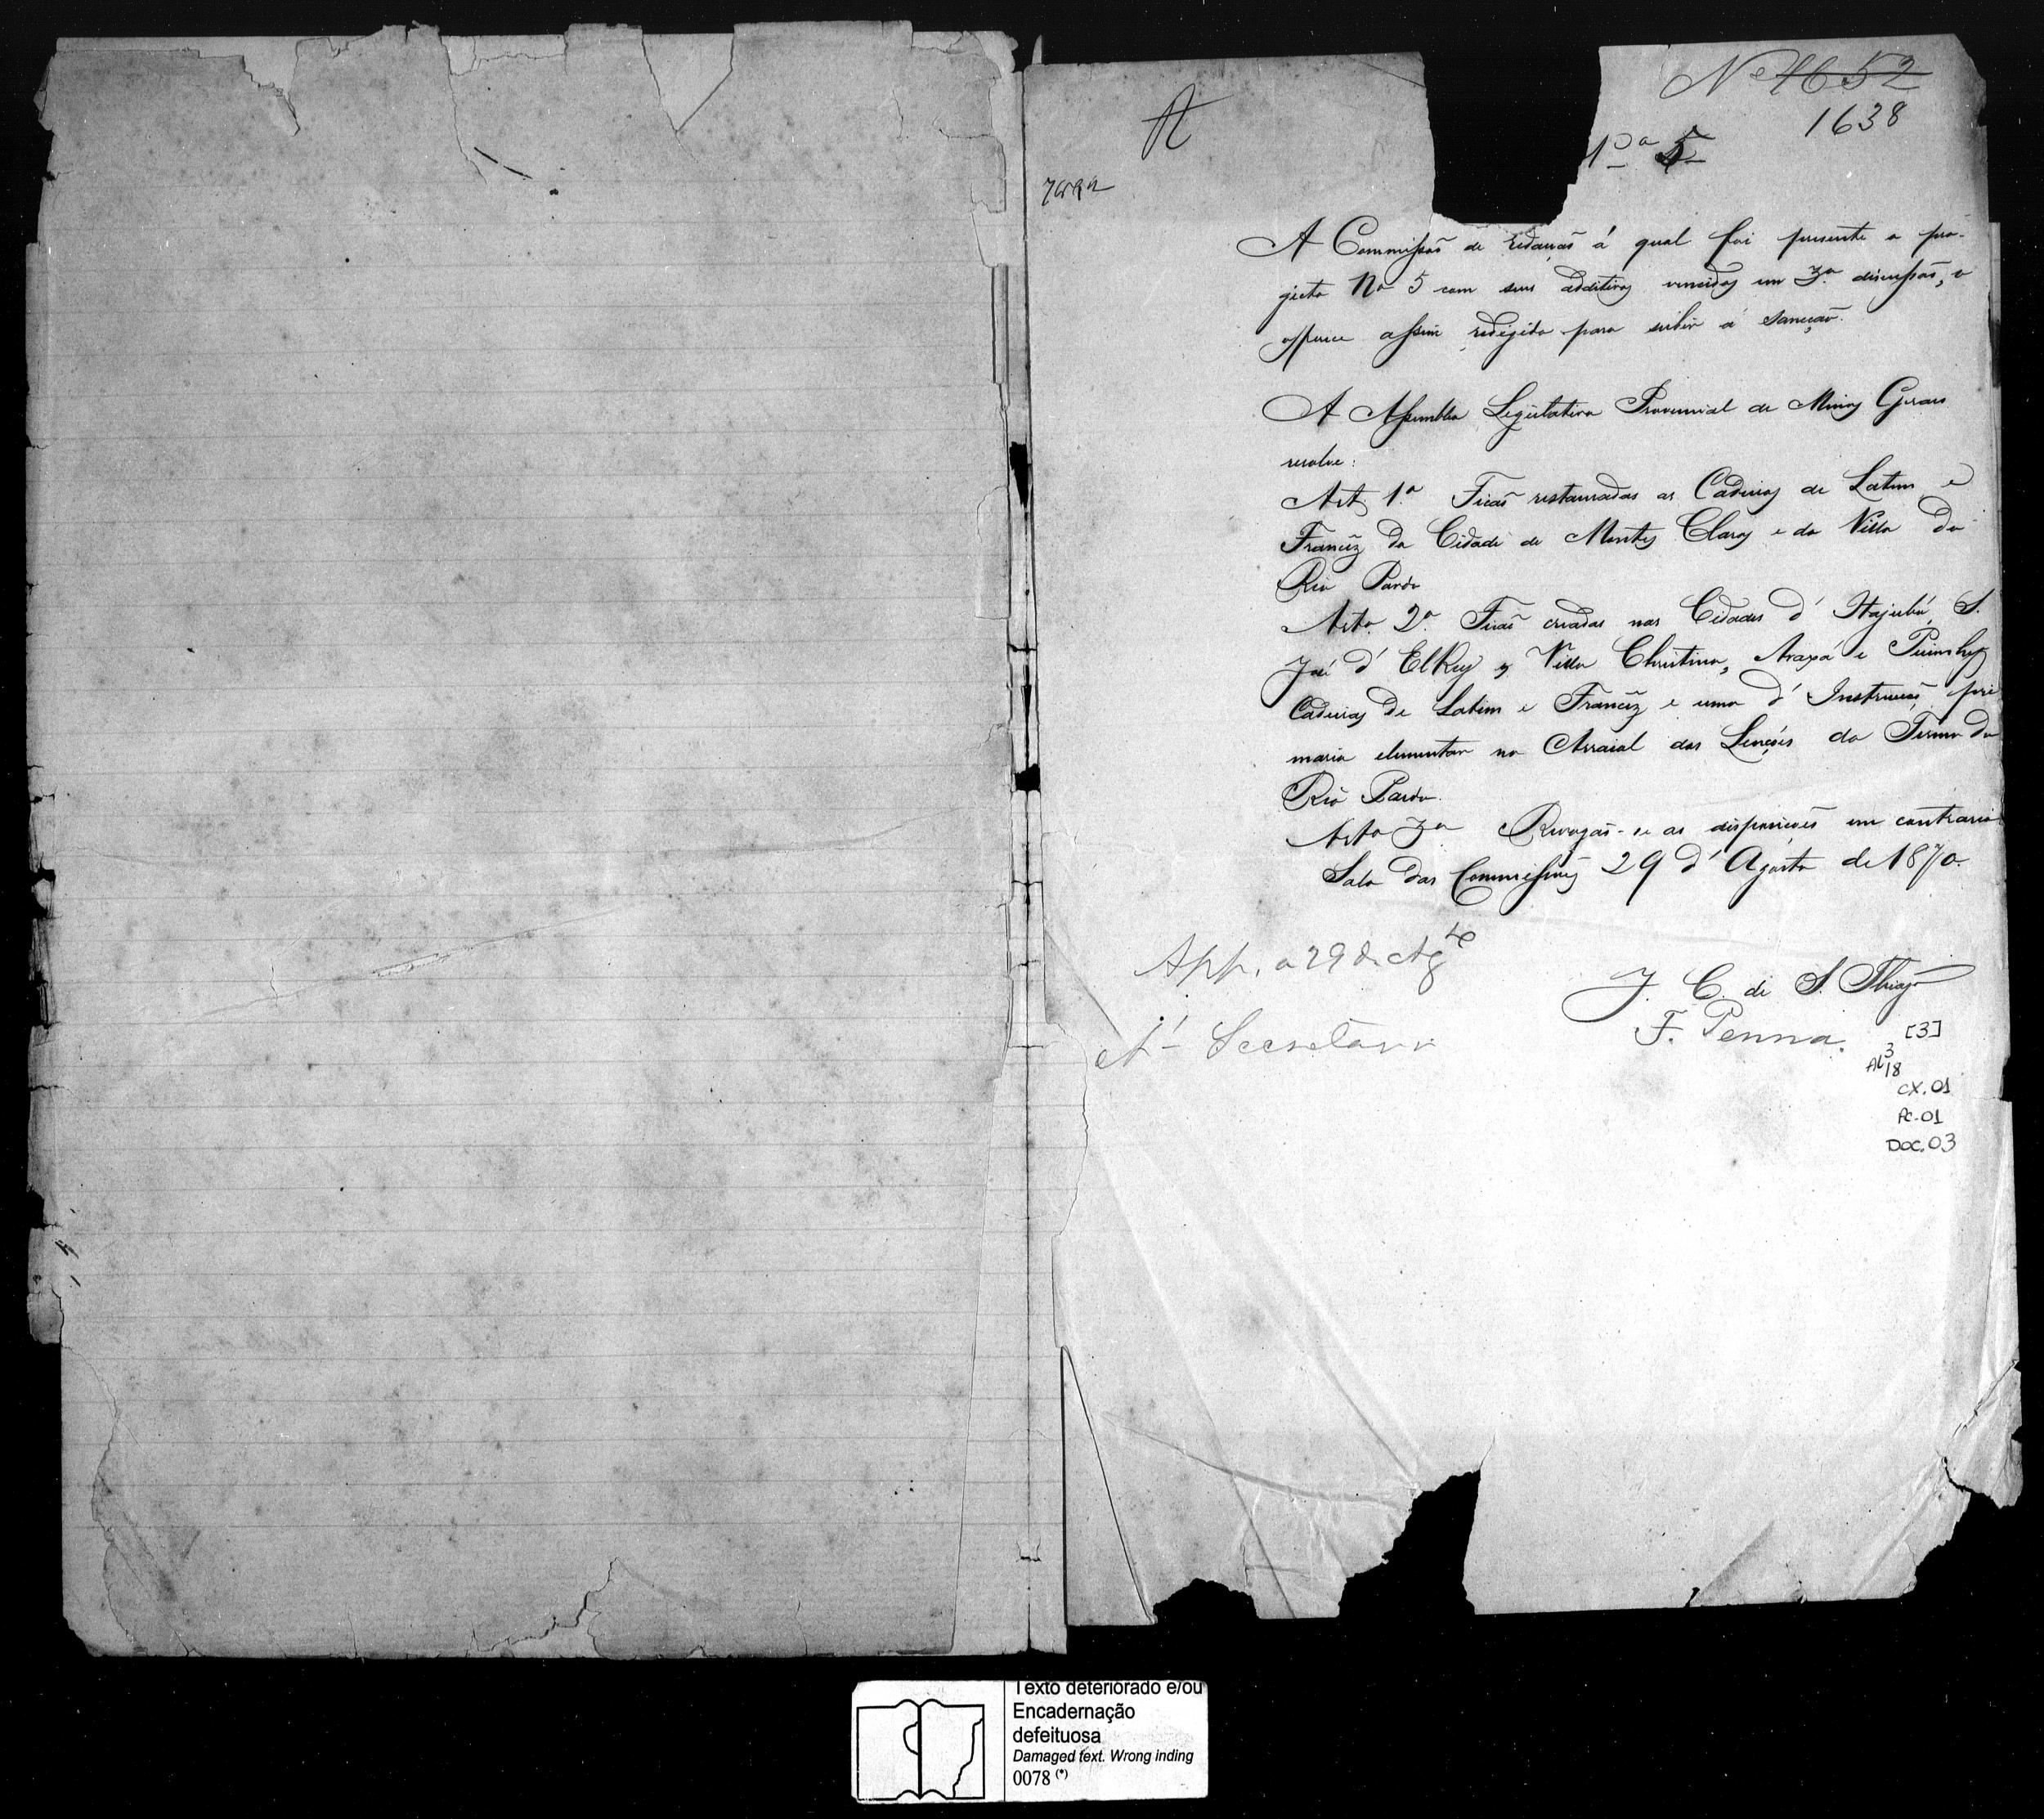 A
Nº 1652
1638
Nº 5
A Commissaõ de redacçaõ á qual foi presente o pro-
jecto Nº 5 com seus additivos vencidos em 3ª discussaõ, o
offerece assim redigido para subir á Sancçaõ.
A Assemblea Legislativa Provincial de Minas Geraes
resolve:
Art 1º Ficaõ restauradas as Cadeiras de Latim e
Francêz da Cidade de Montes Claros e da Villa do
Rio Pardo
Artº 2º Ficaõ creadas nas Cidades d' Itajubá, S.
José d' ElRey, Villa Christina, Araxá e Piumhy
Cadeiras de Latim e Francêz e uma d' Instrucçaõ pri
maria elementar no Arraial dos Lençóes do Termo do
Rio Pardo.
Artº 3º Revogaõ-se as disposicões em contrario
Sala das Commissões 29 d' Agosto de 1870.
App. a 29 de Agto
J. C. de S. Thiago
Á Secretaria
F. Penna.
[3]
AL 3
18
CX.01
PC.01
DOC.03
Texto deteriorado e/ou
Encadernação
defeituosa
Damaged text. Wrong inding
0078 (*)